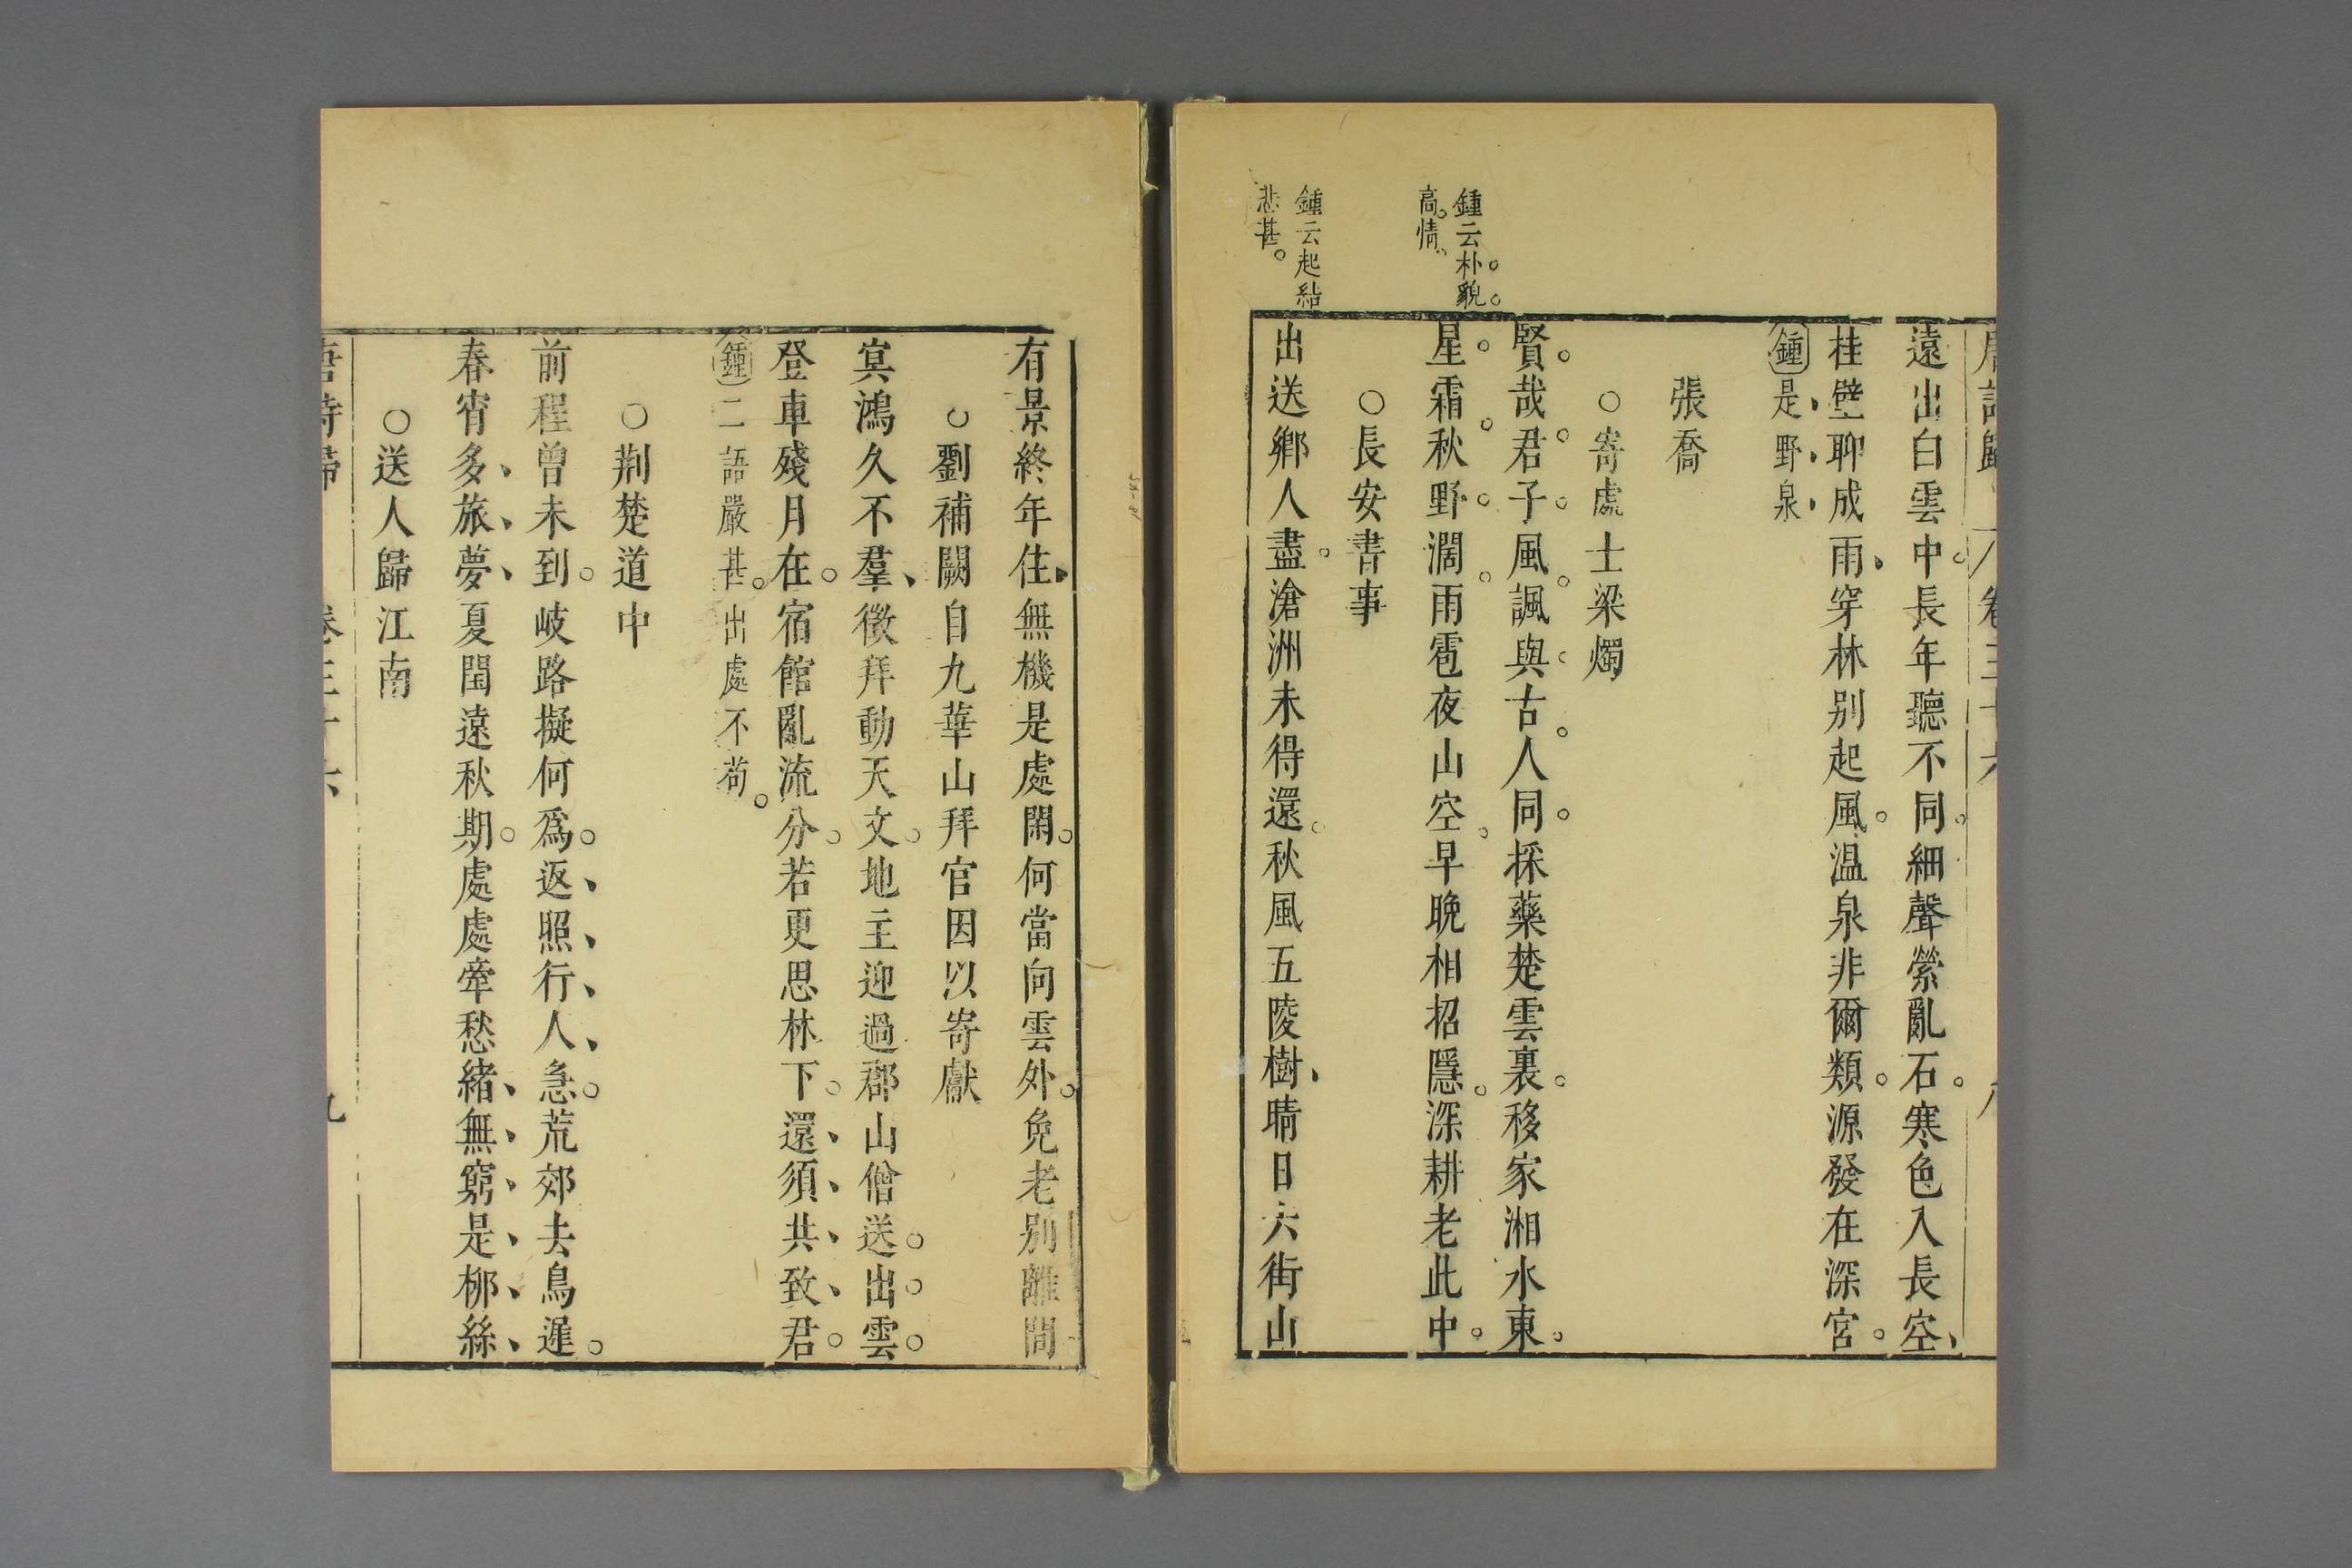 唐詩歸 卷三十六 八
遠出白雲中。長年聽不同。細聲縈亂石。寒色入長空、
桂壁聊成雨、穿林别起風。温泉非爾類。源發在深宮。
鍾 是、野、泉、
張喬
○寄處士梁燭
賢。哉。君。子。風。諷。與。古。人。同。採藥楚雲裏。移家湘水東。
星。霜。秋。野。濶。雨雹夜山空。早晚相招隱。深耕老此中。
○長安書事
出送鄉人盡。滄洲未得還。秋風五陵樹、晴日六街山
鍾云朴。貌。
高。情。
鍾云起結
悲甚。
有景終年住、無機是處閑。何當向雲外。免老别離間
○劉補闕自九華山拜官因以寄獻
冥鴻久不羣、徵拜動天文。地主迎過郡山僧送。出。雲。
登車殘月在。宿館亂流分。若更思林下。還、須、共、致、君。
鍾 二語嚴甚。出處不苟。
○荆楚道中
前程曾未到。岐路擬何爲。返、照、行、人、急。荒郊去鳥遲。
春宵多、旅、夢、夏閏遠秋期。處處牽愁緒、無、窮、是、柳、絲、
○送人歸江南
唐詩歸 卷三十六 九